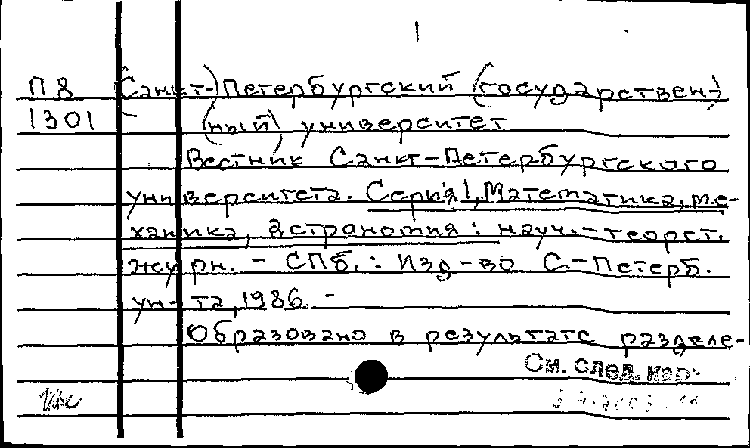 1
П8 (Санкт-)Петербургский (государствен-)
1301 (ный) университет
Вестник Санкт-Петербургского
университета. Серия 1, Математика, ме-
ханика, астрономия: науч.-теорет.
журн. - СПб.: Изд-во С-Петерб.
ун-та, 1986. -
Образовано в результате разделе-
См. след. кар.